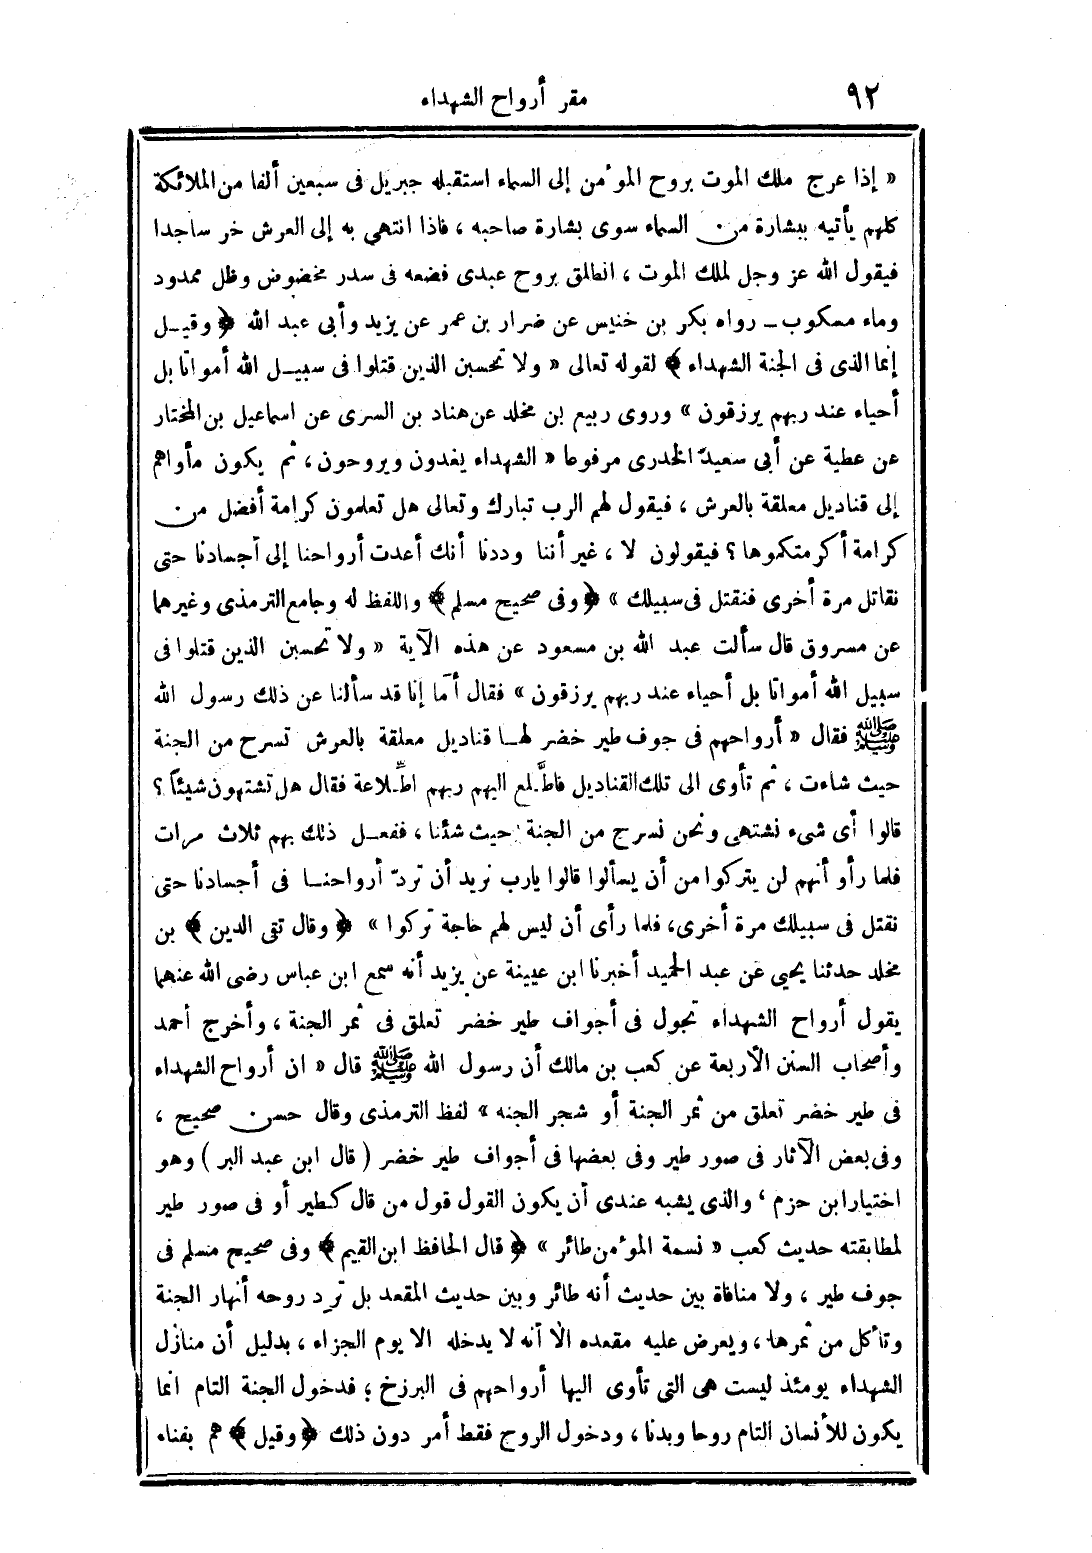 ٩٢
مقر أرواح الشهداء
« إذا عرج ملك الموت بروح المؤمن إلى السماء استقبله جبريل فى سبعين ألفا من الملائكة
كلهم يأتيه ببشارة من السماء سوى بشارة صاحبه ، فاذا انتهي به إلى العرش خر ساجدا
فيقول الله عز وجل لملك الموت ، انطلق بروح عبدى فضعه فى سدر مخضوض وظل ممدود
وماء مسكوب ــ رواه بكر بن خنيس عن ضرار بن عمر عن يزيد وأبى عبد الله ﴿ وقيـل
إنما الذى فى الجنة الشهداء ﴾ لقوله تعالى « ولا تحسبن الذين قتلوا فى سبيـل الله أمواتا بل
أحياء عند ربهم يرزقون » وروى ربيع بن مخلد عن هناد بن السرى عن اسماعيل بن المختار
عن عطية عن أبى سعيد الخدرى مرفوعا « الشهداء يغدون ويروحون ، ثم يكون مأواهم
إلى قناديل معلقة بالعرش ، فيقول لهم الرب تبارك وتعالى هل تعلمون كرامة أفضل من
كرامة أكرمتكموها ؟ فيقولون لا ، غير أننا وددنا أنك أعدت أرواحنا إلى أجسادنا حتى
نقاتل مرة أخرى فنقتل فى سبيلك » ﴿ وفى صحيح مسلم ﴾ واللفظ له وجامع الترمذى وغيرهما
عن مسروق قال سألت عبد الله بن مسعود عن هذه الآية « ولا تحسبن الذين قتلوا فى
سبيل الله أمواتا بل أحياء عند ربهم يرزقون » فقال أما إنا قد سألنا عن ذلك رسول الله
ﷺ فقال « أرواحهم فى جوف طير خضر لهـا قناديل معلقة بالعرش تسرح من الجنة
حيث شاءت ، ثم تأوى الى تلك القناديل فاطَّلع اليهم ربهم اطِّلاعة فقال هل تشتهون شيئاً ؟
قالوا أى شيء نشتهى ونحن نسرح من الجنة حيث شئنا ، ففعـل ذلك بهم ثلاث مرات
فلما رأو أنهم لن يتركوا من أن يسألوا قالوا يارب نريد أن تردّ أرواحنـا فى أجسادنا حتى
نقتل فى سبيلك مرة أخرى، فلما رأى أن ليس لهم حاجة تركوا » ﴿ وقال تقى الدين ﴾ بن
مخلد حدثنا يحيى عن عبد الحميد أخبرنا ابن عيينة عن يزيد أنه سمع ابن عباس رضى الله عنهما
يقول أرواح الشهداء تجول فى أجواف طير خضر تعلق فى ثمر الجنة ، وأخرج أحمد
وأصحاب السنن الأربعة عن كعب بن مالك أن رسول الله ﷺ قال « ان أرواح الشهداء
فى طير خضر تعلق من ثمر الجنة أو شجر الجنه » لفظ الترمذى وقال حسن صحيح ،
وفى بعض الآثار فى صور طير وفى بعضها فى أجواف طير خضر ( قال ابن عبد البر ) وهو
اختيار ابن حزم ، والذى يشبه عندى أن يكون القول قول من قال كـطير أو فى صور طير
لمطابقته حديث كعب « نسمة المؤمن طائر » ﴿ قال الحافظ ابن القيم ﴾ وفى صحيح مسلم فى
جوف طير ، ولا منافاة بين حديث أنه طائر وبين حديث المقعد بل ترد روحه أنهار الجنة
وتأكل من ثمرها ، ويعرض عليه مقعده الا أنه لا يدخله الا يوم الجزاء ، بدليل أن منازل
الشهداء يومئذ ليست هى التى تأوى اليها أرواحهم فى البرزخ ؛ فدخول الجنة التام انما
يكون للأنسان التام روحا وبدنا ، ودخول الروح فقط أمر دون ذلك ﴿ وقيل ﴾ هم بفناء